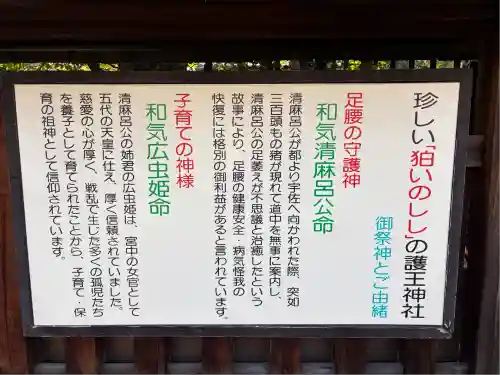 珍しい「狛いのしし」の護王神社
御祭神とご由緒
足腰の守護神
和気清麻呂公命
清麻呂公が都より宇佐へ向かわれた際、突如
三百頭もの猪が現れて道中を無事に案内し、
清麻呂公の足萎えが不思議と治癒したという
故事により、足腰の健康安全・病気怪我の
快復には格別の御利益があると言われています。
子育ての神様
和気広虫姫命
清麻呂公の姉君の広虫姫は、宮中の女官として
五代の天皇に仕え、厚く信頼されていました。
慈愛の心が厚く、戦乱で生じた多くの孤児たち
を養子として育てられたことから、子育て・保
育の祖神として信仰されています。